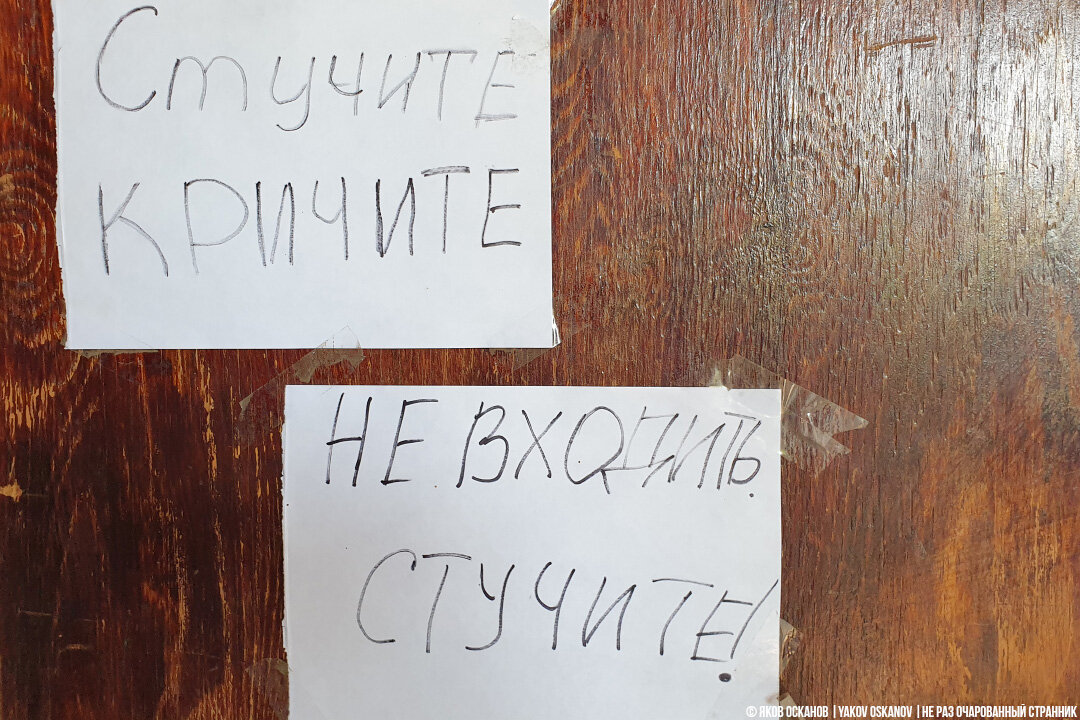 Стучите
КРИЧИТЕ
НЕ ВХОДИТЬ.
СТУЧИТЕ!
© ЯКОВ ОСКАНОВ | YAKOV OSKANOV | НЕ РАЗ ОЧАРОВАННЫЙ СТРАННИК